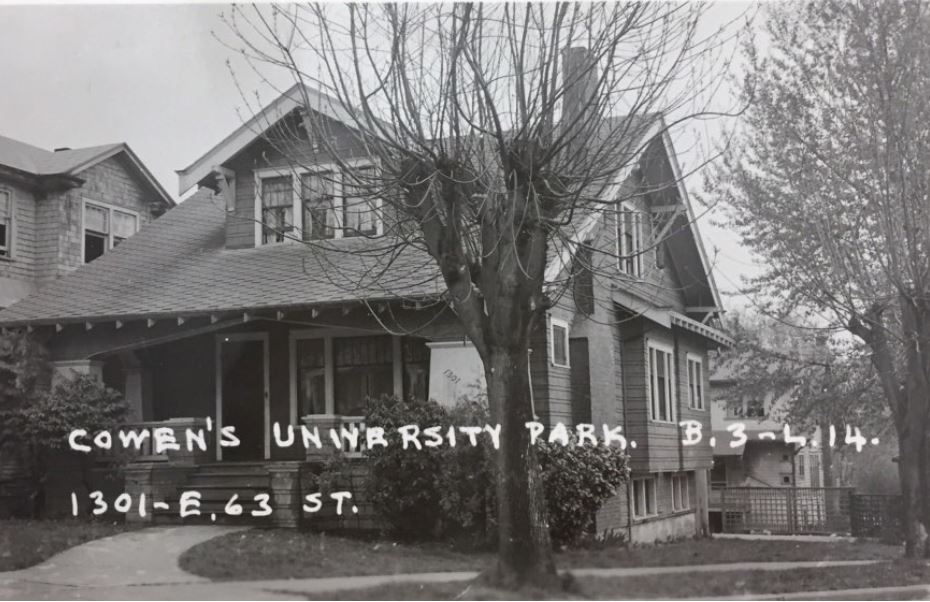 1301
COWEN'S UNIVERSITY PARK. B.3-L.14.
1301-E.63 ST.